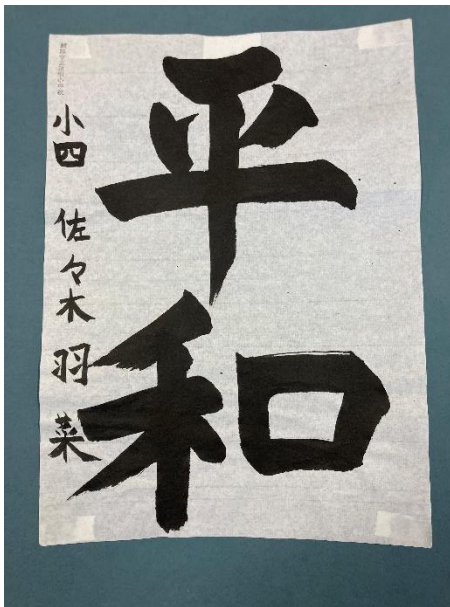 平和
小四 佐々木羽菜